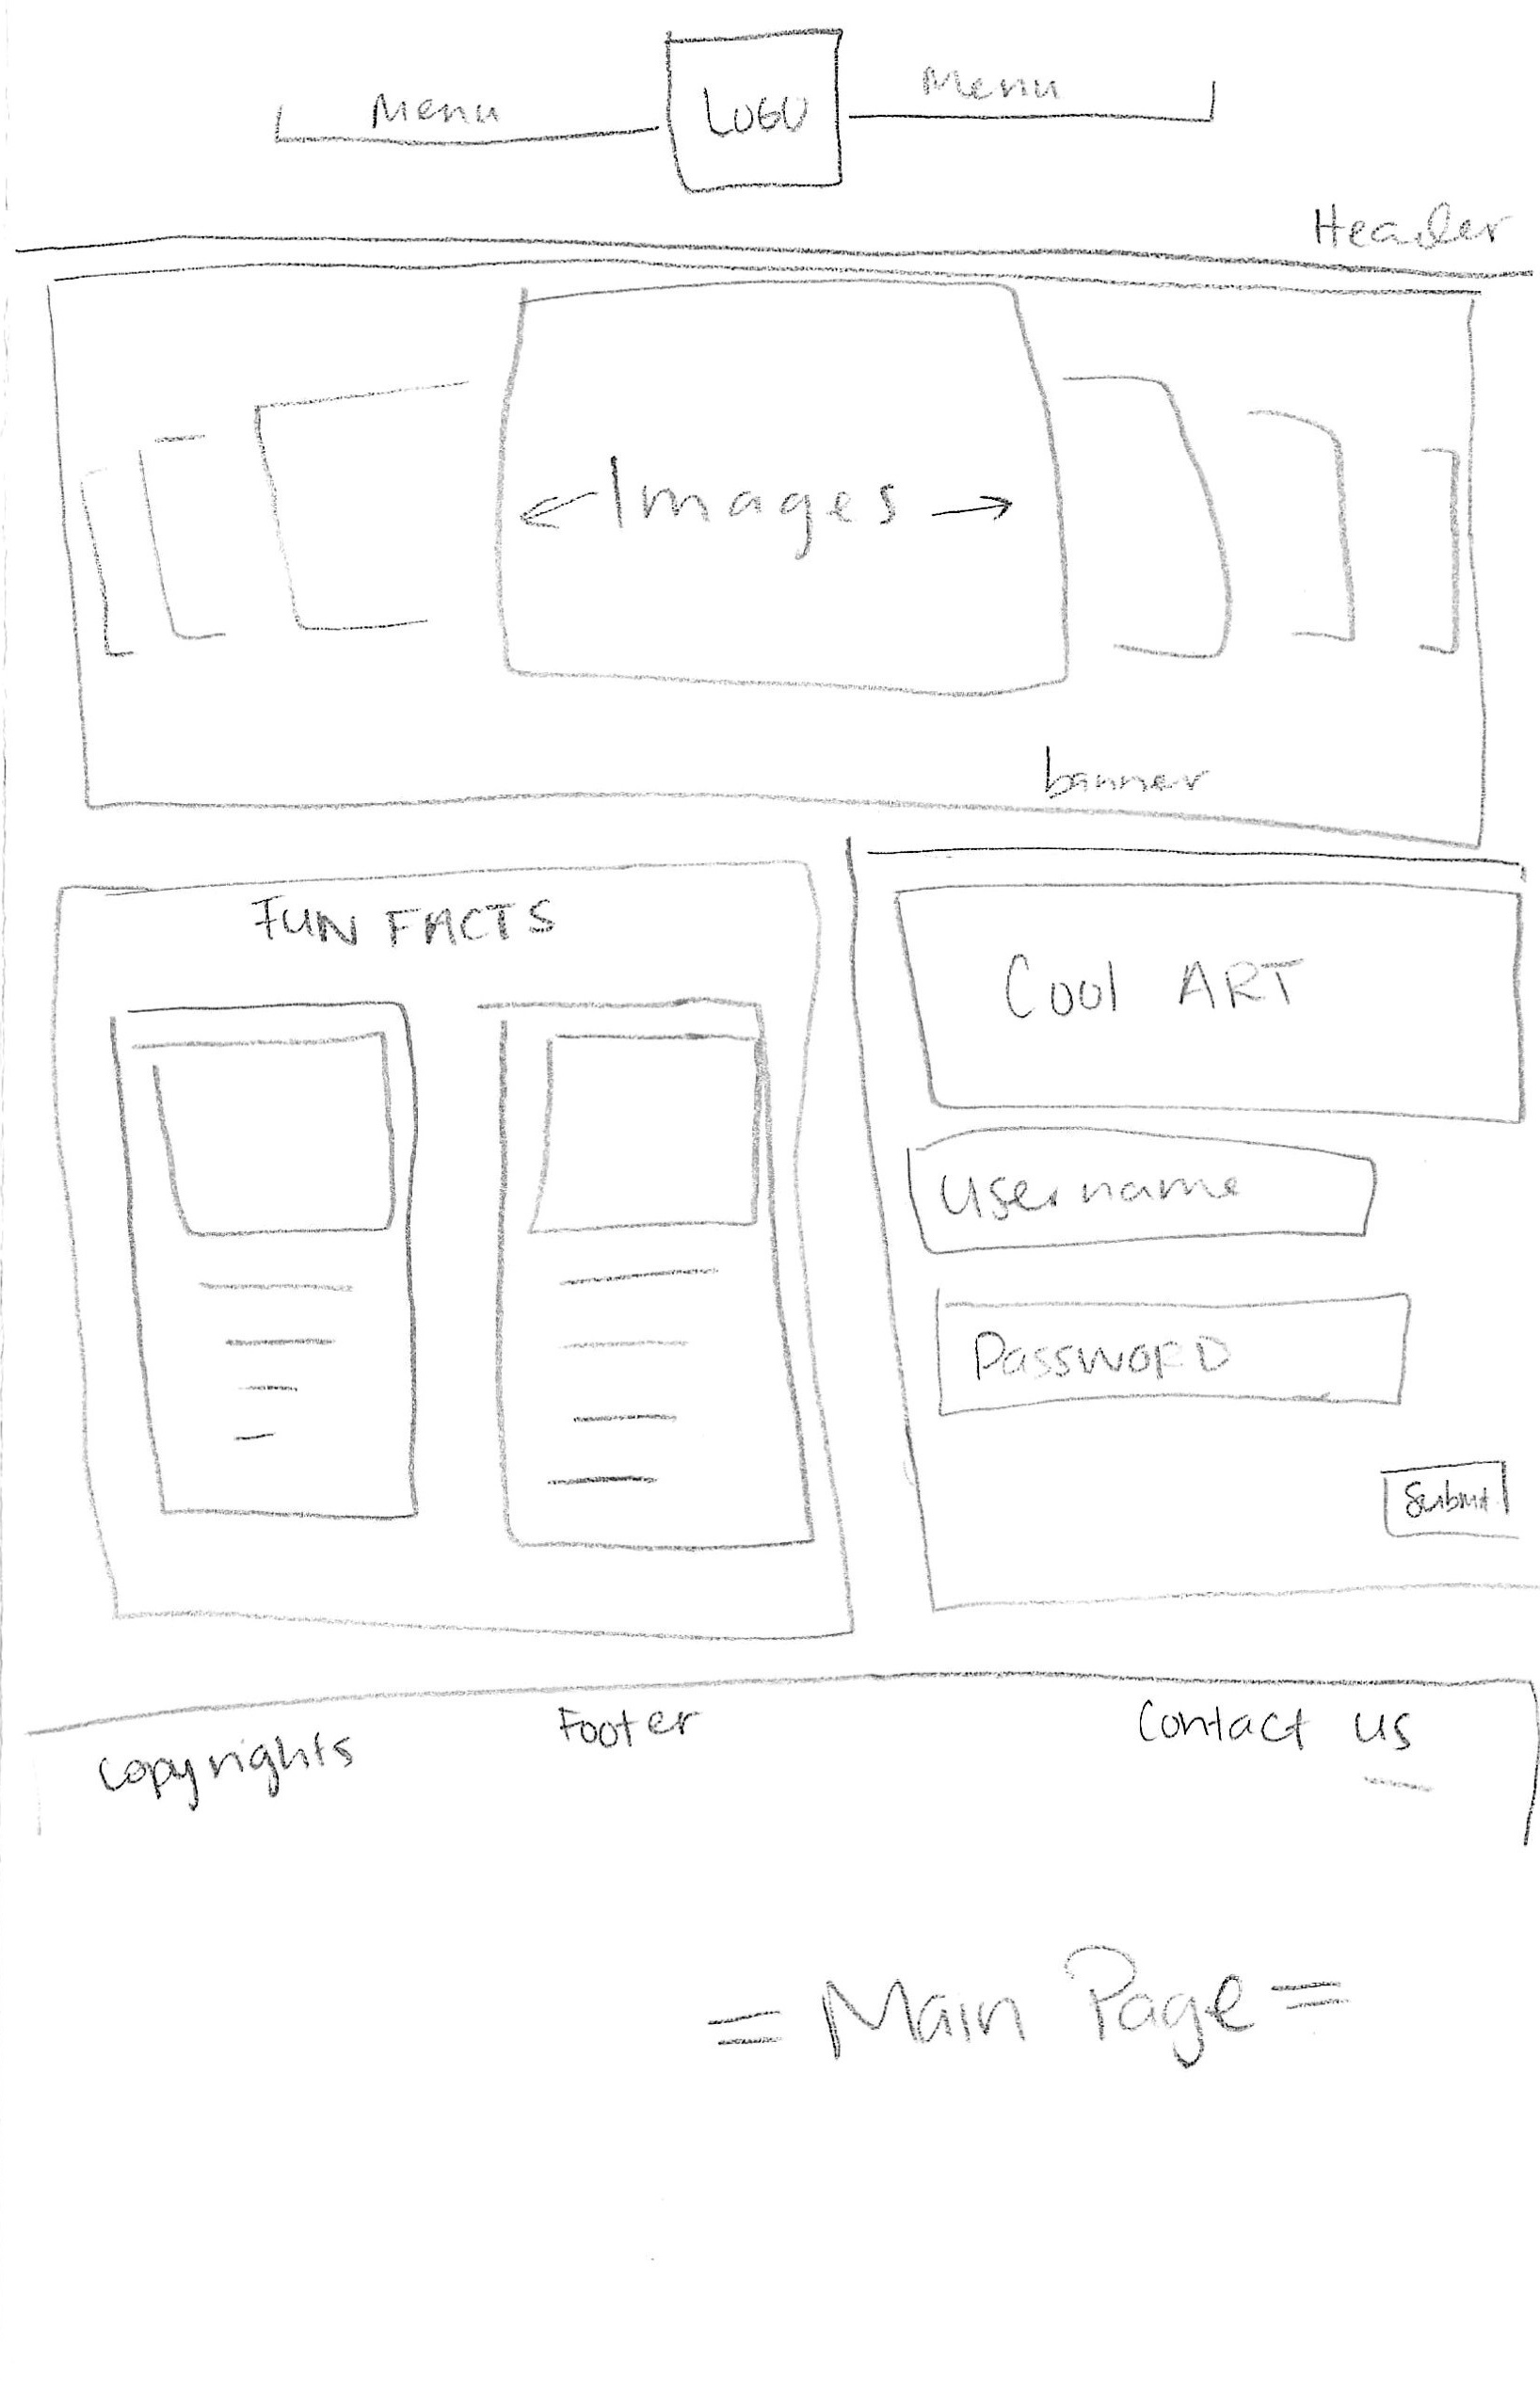 Menu
LOGO
Menu
Header
Images
banner
FUN FACTS
Cool ART
Username
PassWORD
Submit
Copyrights
Footer
Contact us
= Main Page =